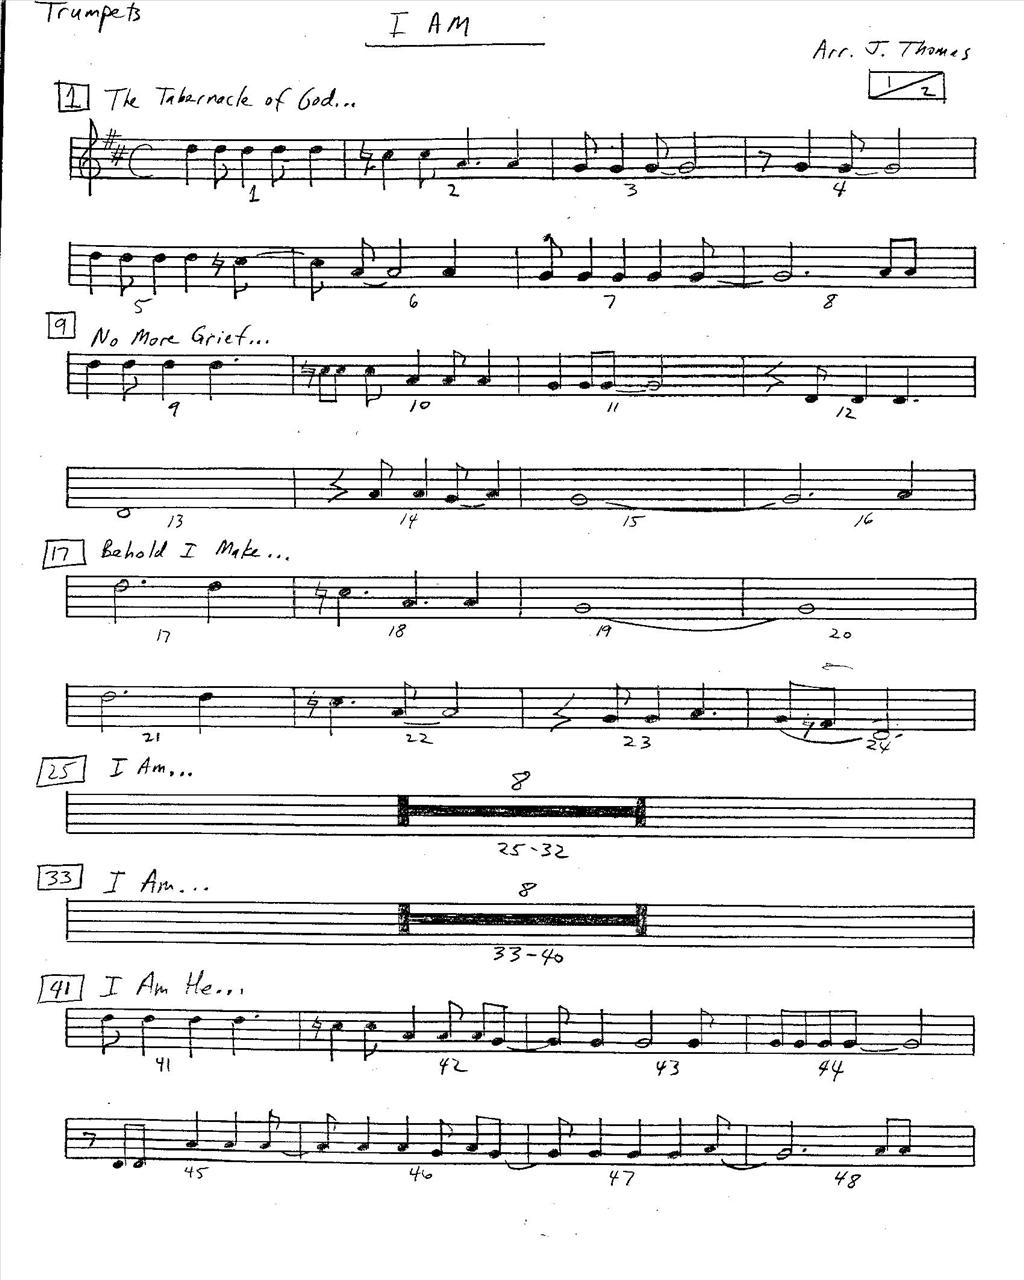 Trumpets
I AM
Arr. J. Thomas
1/2
1 The Tabernacle of God...
1 2 3 4
5 6 7 8
9 No More Grief...
9 10 11 12
13 14 15 16
17 Behold I Make...
17 18 19 20
21 22 23 24
25 I Am...
8
25-32
33 I Am...
8
33-40
41 I Am He...
41 42 43 44
45 46 47 48